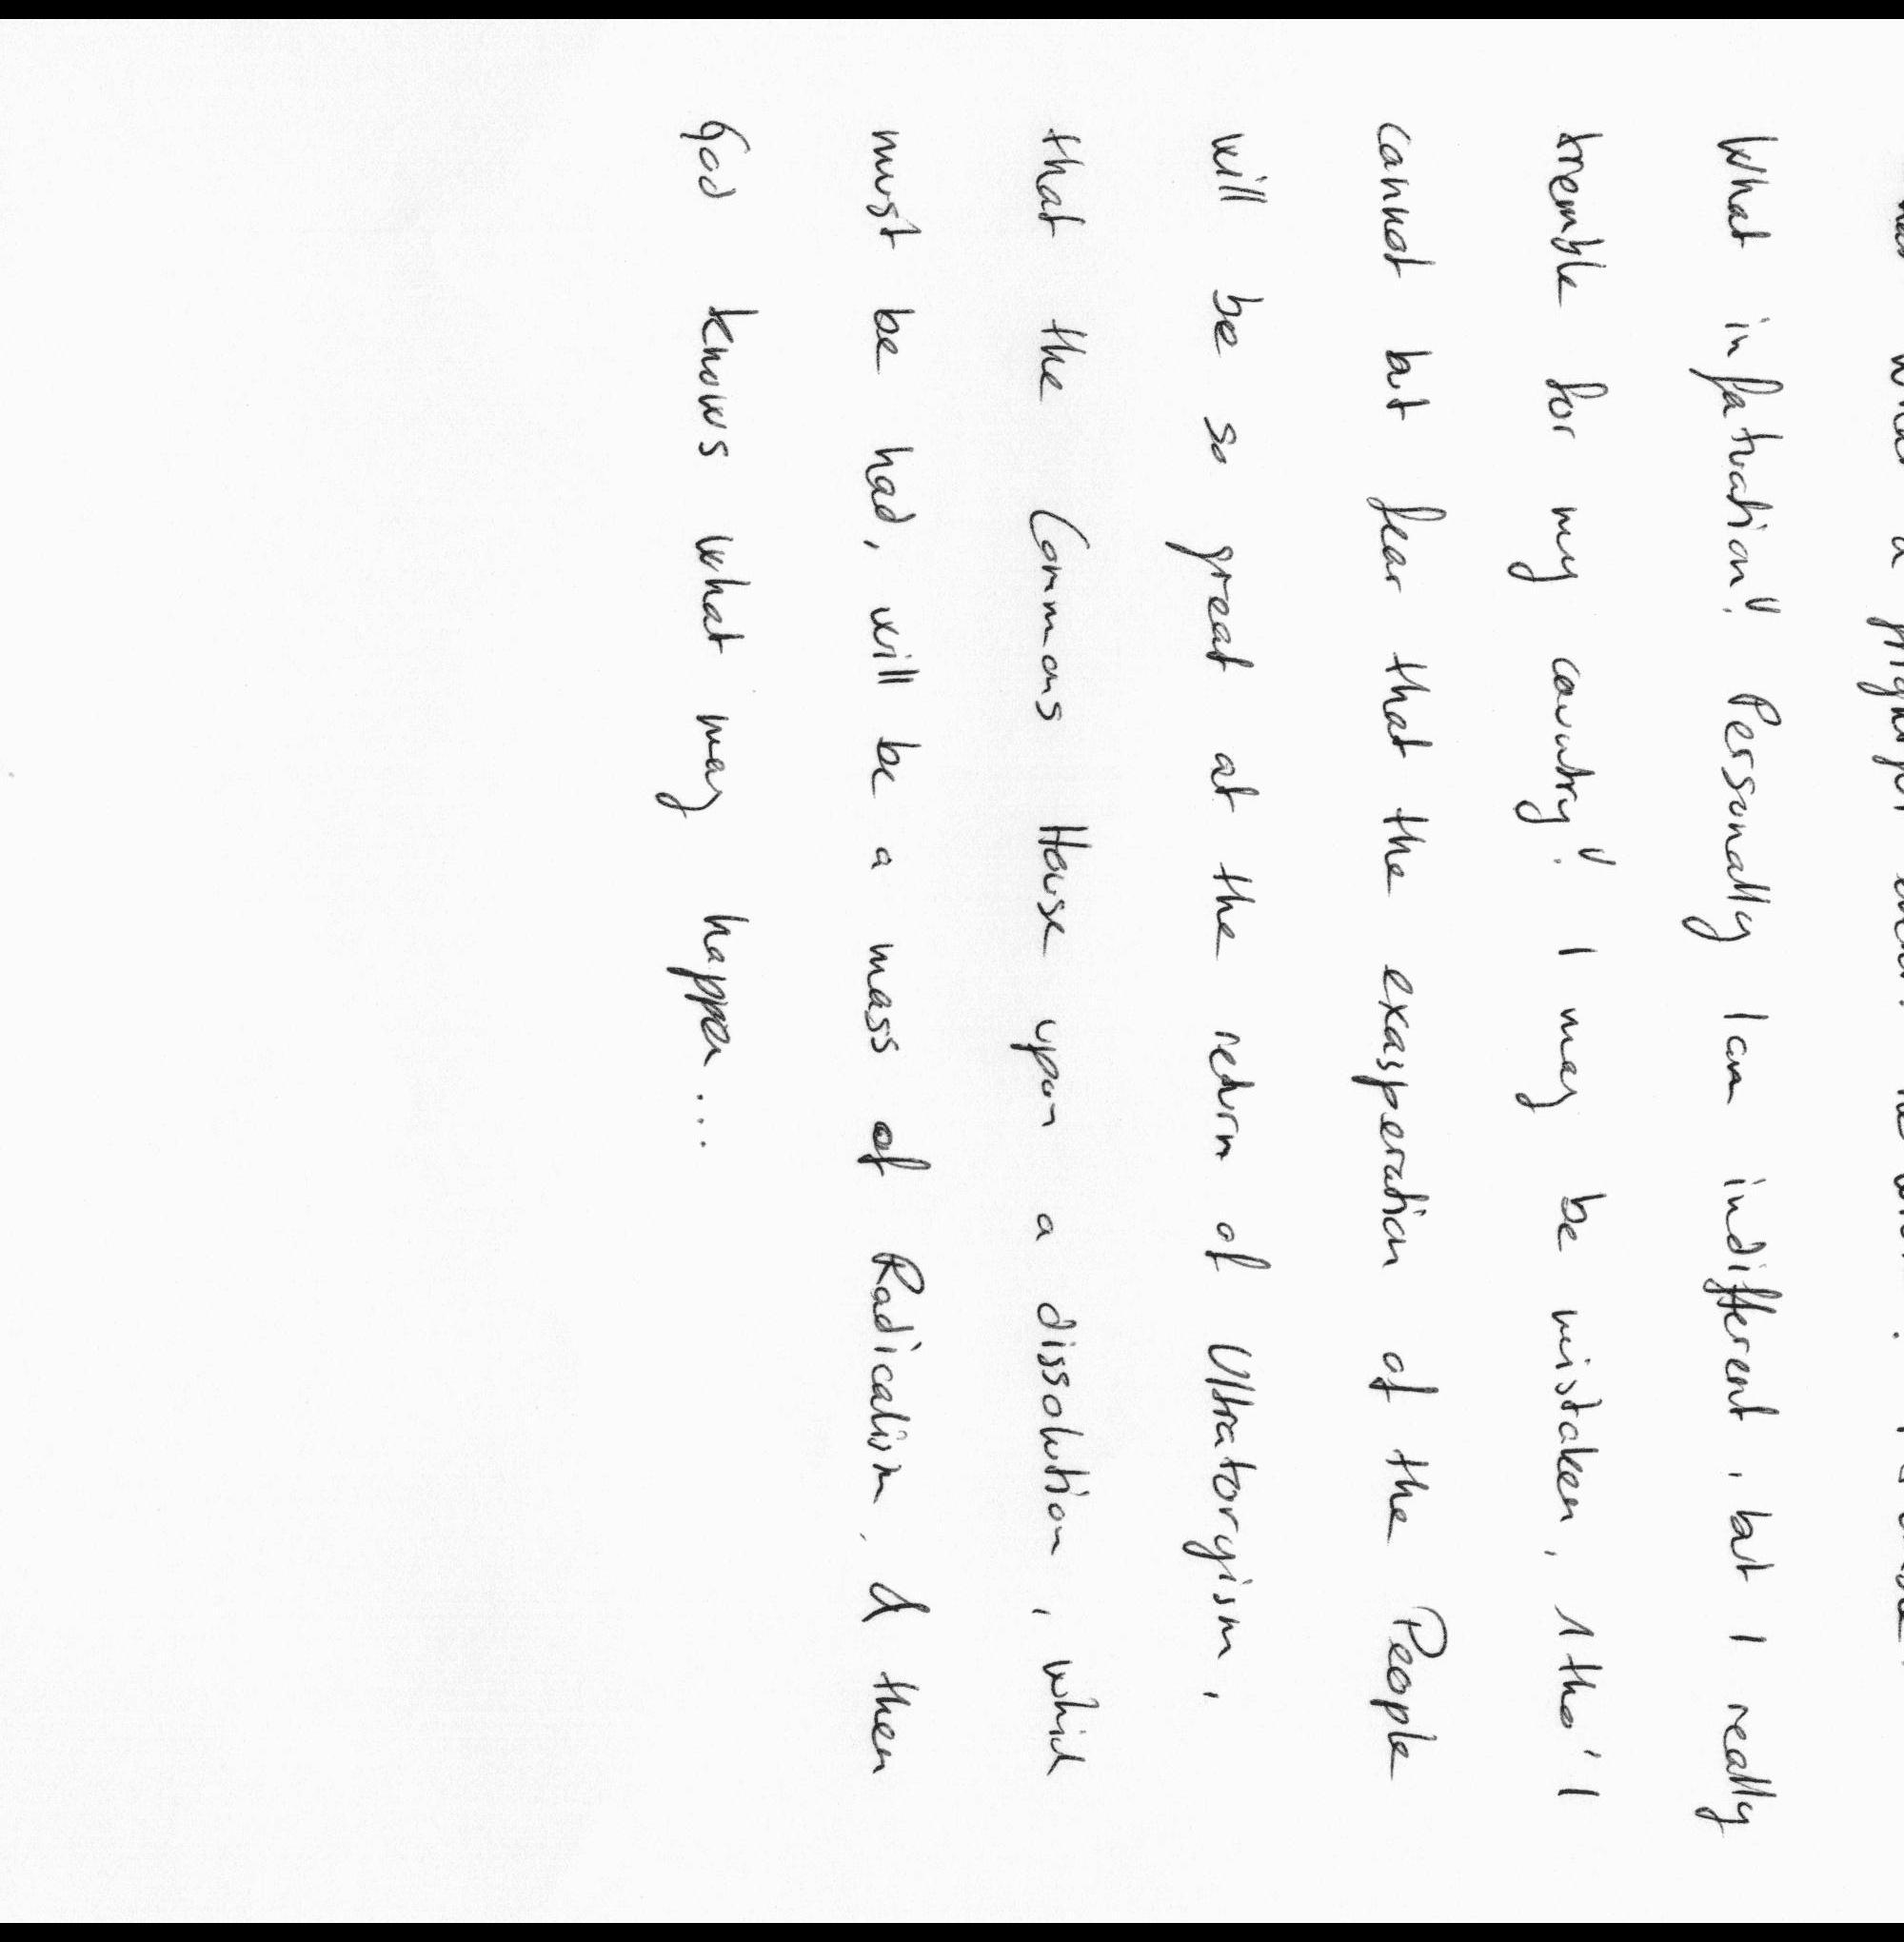 what a
What infatuation! Personally I am indifferent, but I really
tremble for my country! I may be mistaken, tho' I
cannot but fear that the exasperation of the People
will be so great at the return of Ultratoryism,
that the Commons House upon a dissolution, which
must be had, will be a mass of Radicalism, & then
God knows what may happen...